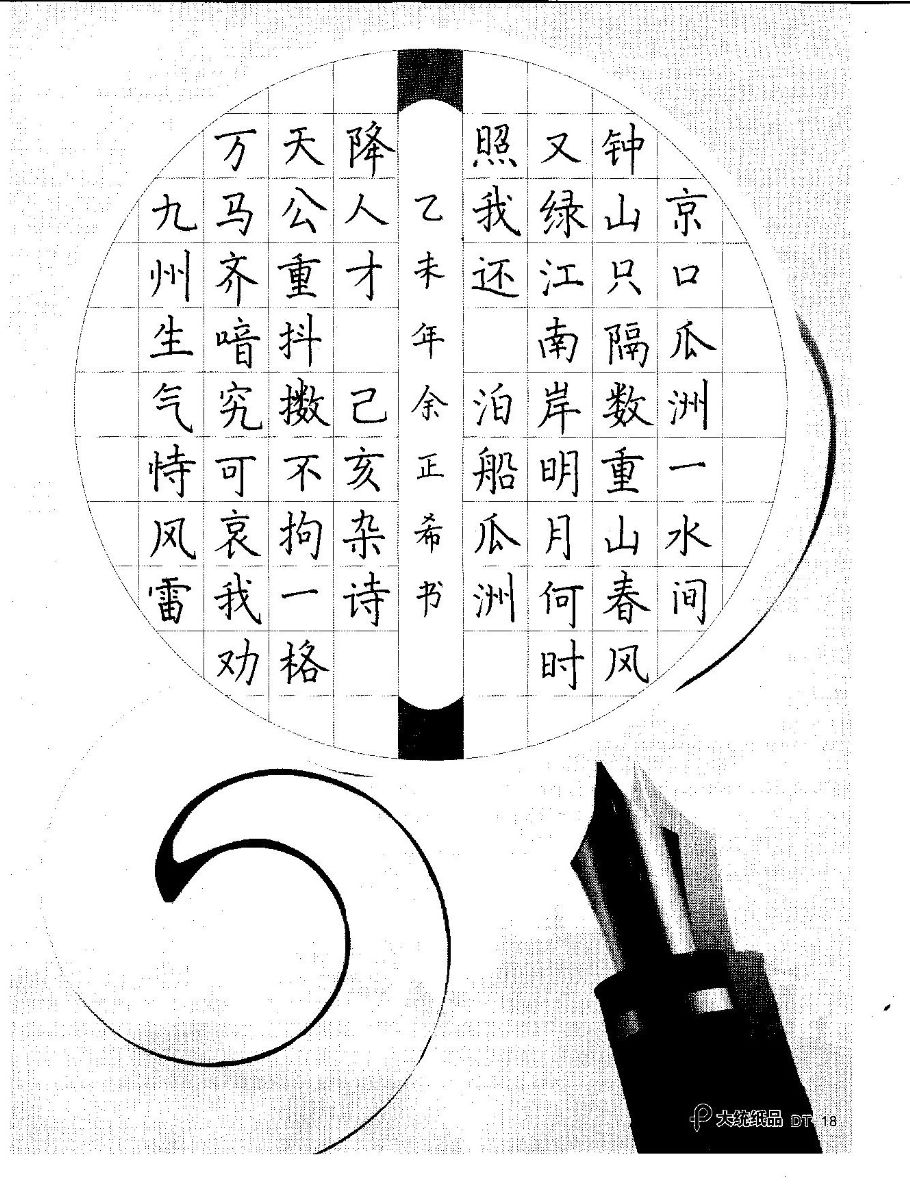 京口瓜洲一水间
钟山只隔数重山春风
又绿江南岸明月何时
照我还 泊船瓜洲
九州生气恃风雷
万马齐喑究可哀我劝
天公重抖擞不拘一格
降人才 己亥杂诗
乙未年余正希书
大统纸品 DT-18